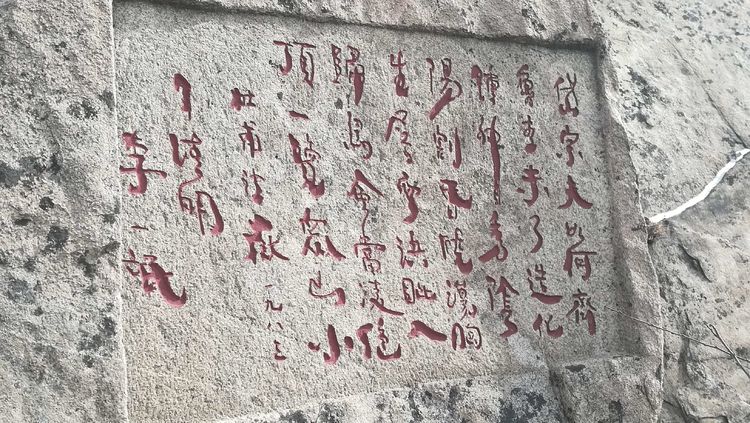 岱宗夫如何齊
魯青未了造化
鍾神秀陰
陽割昏曉盪胸
生層雲決眥入
歸鳥會當凌絕
頂一覽眾山小
杜甫望嶽 一九八三
年清明
李一氓